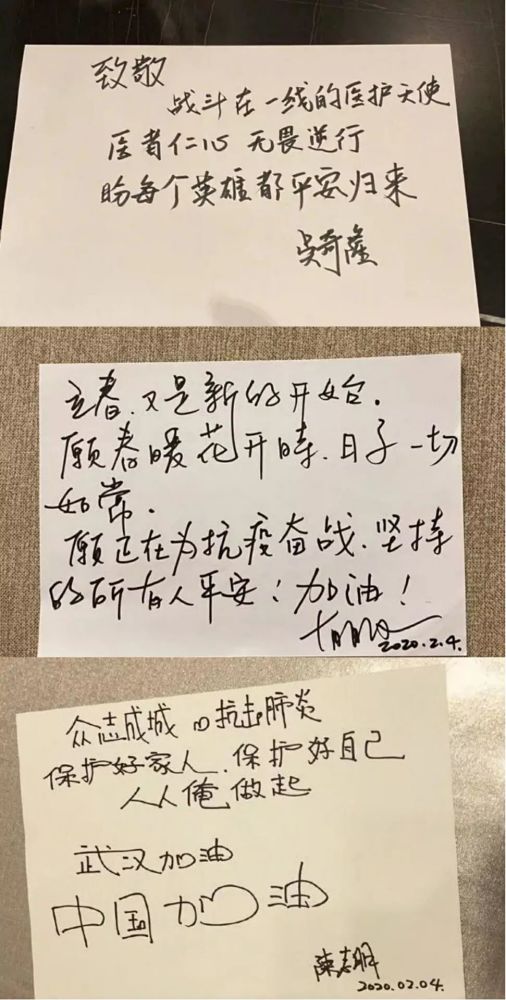 致敬
战斗在一线的医护天使
医者仁心 无畏逆行
盼每个英雄都平安归来
吴奇隆
立春.又是新的开始.
愿春暖花开時.日子一切
如常.
愿正在为抗疫奋战.坚持
的所有人平安!加油!
2020.2.4.
众志成城 抗击肺炎
保护好家人.保护好自己
人人俺做起
武汉加油
中国加油
陳志朋
2020.02.04.